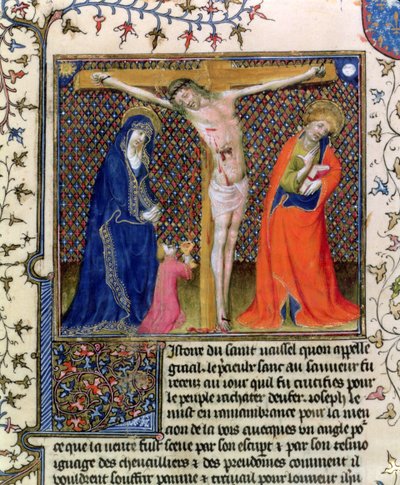 Istoire du saint vaissel quon appelle
graal. le pcieux sanc au sauueur fu
receu au iour quil fu crucifies pour
le peuple rachater denfer. Joseph le
mist en ramambrance pour la men
cion de la vois auecques un angle po
ce que la verite fust sceue par son escript & par son tesmo
ignage des cheualliers & des preudomes comment il
vouldrent souffrir paine & trauail pour lonneur ihu